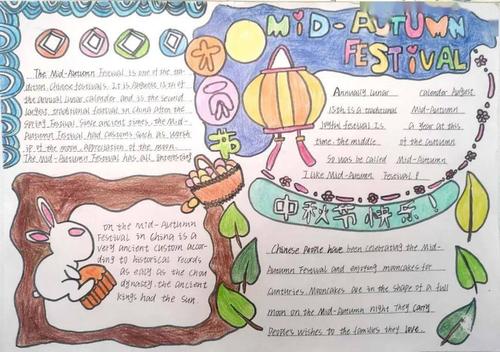 MID-AUTUMN
FESTIVAL
The Mid-Autumn Festival is one of the tra-
dition Chinese festivals. It is August is 15 of
the annual lunar calender and is the second
largest traditional festival in China after the
spring Festival. Since ancient times, the Mid-
Autumn Festival had customs such as worsh
ip of the moon, appreciation of the moon.
The Mid-Autumn Festival has all
Annually lunar calender August
15th is a traditional Mid-Autumn
joyful festival. Is a year at this
time, the middle of the Cautumn
So was be called Mid-Autumn
I like Mid-Autumn Festival!
中秋节快乐!
on the Mid-Autumn
Festival in China is a
very ancient custom accor-
ding to historical records
as easly as the Chou
dynasty. the ancient
kings had the sun.
Chinese people have been celebrating the Mid-
Autumn Festival and enjoying mooncakes for
Cunturies. Mooncakes are in the shape of a full
moon on the Mid-Autumn night They carry
Peoples wishes to the families they love..